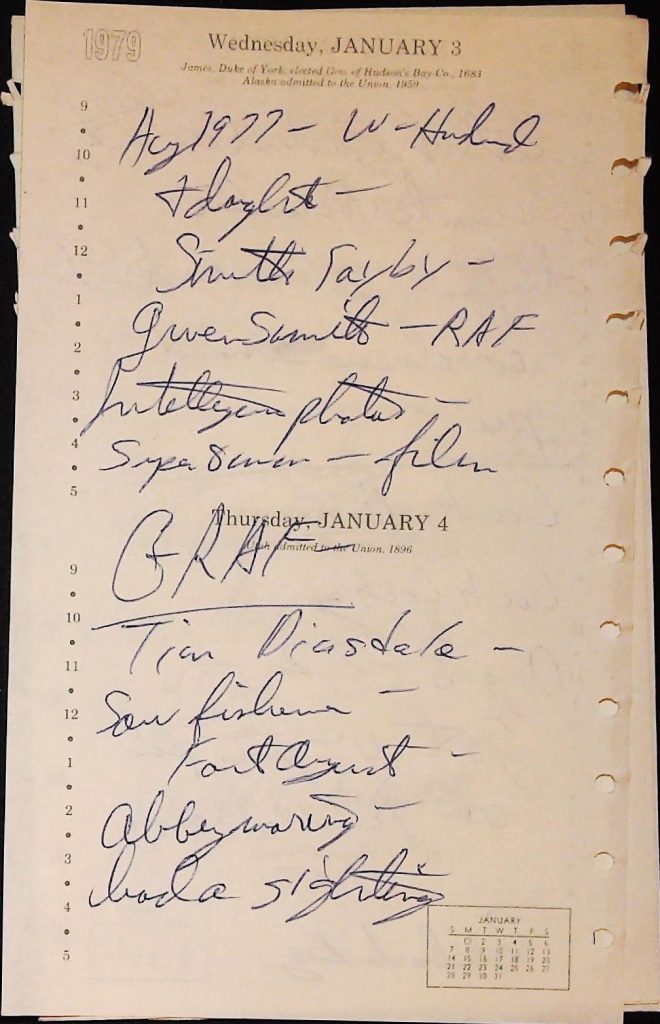 1979
Wednesday, JANUARY 3
James, Duke of York, elected Gov. of Hudson's Bay Co., 1683
Alaska admitted to the Union, 1959
9
Aug 1977 – W – Husband
10
+ daught –
11
12
Smith –
1
Gwen Smith – RAF
2
3
Intelligence photos –
4
Super 8 mm – film
5
Thursday, JANUARY 4
Utah admitted to the Union, 1896
RAF
9
10
Tim Dinsdale –
11
Saw –
12
Fort August –
1
2
Abbey mooring –
3
had a sighting
4
5
JANUARY
S M T W T F S
1 2 3 4 5 6
7 8 9 10 11 12 13
14 15 16 17 18 19 20
21 22 23 24 25 26 27
28 29 30 31